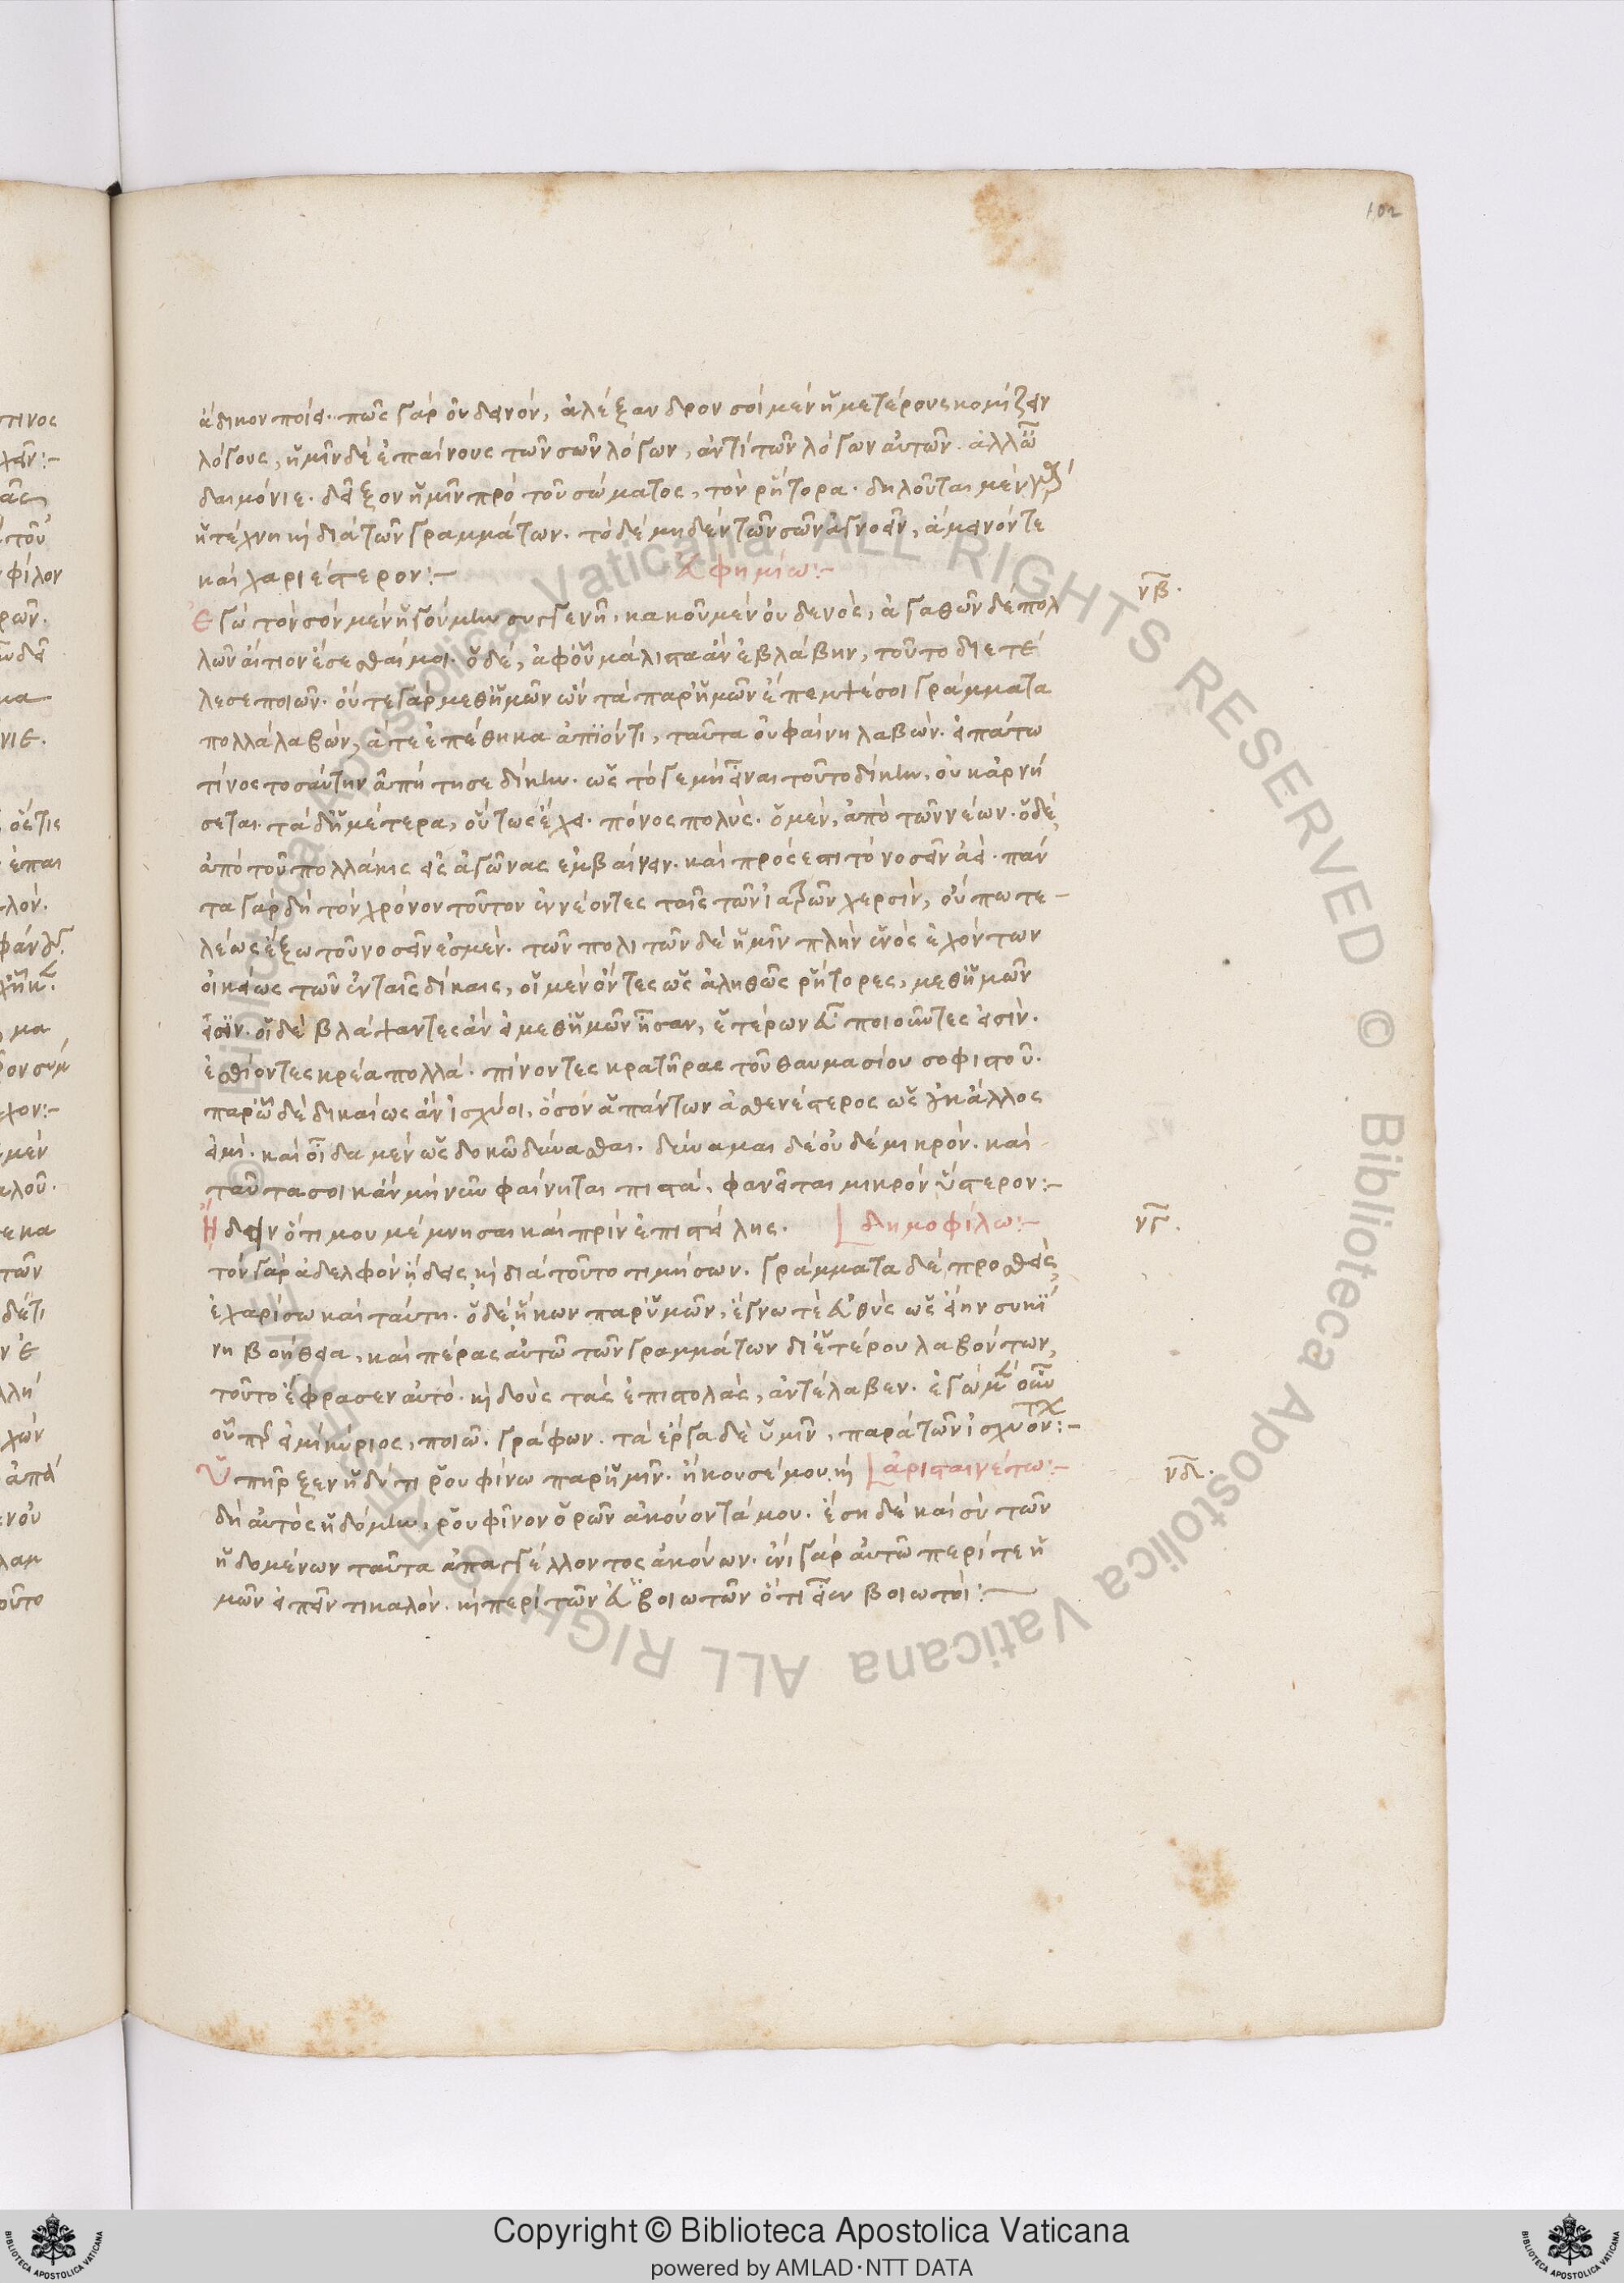 102
ἄδικον ποιεῖ. πῶς γὰρ οὐ δεινόν, ἀλέξανδρον σοὶ μὲν ἡμετέρους κομίζειν
λόγους, ἡμῖν δὲ ἐπαίνους τῶν σῶν λόγων, ἀντὶ τῶν λόγων αὐτῶν. ἀλλ' ὦ
δαιμόνιε. δεῖξον ἡμῖν πρὸ τοῦ σώματος, τὸν ῥήτορα. δηλοῦται μὲν γὰρ
ἡ τέχνη καὶ διὰ τῶν γραμμάτων. τὸ δὲ μηδὲν τῶν σῶν ἀγνοεῖν, ἄμεινόν τε
καὶ χαριέστερον:-
εὐφημίω:-
νβ.
Ἐγὼ τὸν σὸν μὲν ἡγούμην συγγενῆ, κακοῦ μὲν οὐδενὸς, ἀγαθῶν δὲ πολ
λῶν αἴτιον ἔσεσθαί μοι. ὁ δέ, ἀφ' οὗ μάλιστα ἂν ἐβλάβην, τοῦτο διετέ
λεσε ποιῶν. οὔτε γὰρ μεθ' ἡμῶν ὢν τὰ παρ' ἡμῶν ἔπεμψέ σοι γράμματα
πολλὰ λαβών, ἅ τε ἐπέθηκα ἀπϊόντι, ταῦτα οὐ φαίνη λαβών. εἰπάτω
τίνος τοσαύτην ἀπήτησε δίκην. ὡς τό γε μὴ εἶναι τοῦτο δίκην, οὐκ ἀρνή
σεται. τὰ δ' ἡμέτερα, οὕτως ἔχει. πόνος πολὺς. ὁ μὲν, ἀπὸ τῶν νέων. ὁ δὲ,
ἀπὸ τοῦ πολλάκις εἰς ἀγῶνας ἐμβαίνειν. καὶ πρόσεστι τὸ νοσεῖν ἀεί. πάν
τα γὰρ δὴ τὸν χρόνον τοῦτον ἐννέοντες ταῖς τῶν ἰατρῶν χερσὶν, οὔπω τε-
λέως ἔξω τοῦ νοσεῖν ἐσμέν. τῶν πολιτῶν δὲ ἡμῖν πλὴν ἑνὸς ἐχόντων
οἰκείως τῶν ἐν ταῖς δίκαις, οἱ μὲν ὄντες ὡς ἀληθῶς ῥήτορες, μεθ' ἡμῶν
εἰσϊν. οἱ δὲ βλάψαντες ἂν εἰ μεθ' ἡμῶν ἦσαν, ἑτέρων εὖ ποιοῦντες εἰσίν.
ἐσθίοντες κρέα πολλά. πίνοντες κρατῆρας τοῦ θαυμασίου σοφιστοῦ.
παρ' ὧ δὲ δικαίως ἂν ἰσχύοι, ὅσον ἁπάντων ἀσθενέστερος ὡς οὐκ ἄλλος
εἰμί. καὶ οἶδα μὲν ὡς δοκῶ δύνασθαι. δύναμαι δὲ οὐδὲ μικρόν. καὶ
ταῦτα σοι κἂν μὴ νῦν φαίνηται πιστά, φανεῖται μικρὸν ὕστερον:-
Ἤδειν ὅτι μου μέμνησαι καὶ πρὶν ἐπιστείλης.
δημοφίλω:-
νγ.
τὸν γὰρ ἀδελφὸν ᾔδεις καὶ διὰ τοῦτο τιμήσων. γράμματα δὲ προσθεὶς,
ἐχαρίσω καὶ ταύτη. ὁ δὲ ἥκων παρ' ὑμῶν, ἔγνω τὲ εὐθὺς ὡς εἴην συκϊ
νη βοήθεια, καὶ πέρας αὐτῶ τῶν γραμμάτων δι' ἑτέρου λαβόντων,
τοῦτο ἔφρασεν αὐτό. καὶ δοὺς τὰς ἐπιστολὰς, ἀντέλαβεν. ἐγὼ μὲν οὖν
οὗπερ εἰμὶ κύριος, ποιῶ. γράφων. τὰ ἔργα δὲ ὑμῖν, παρὰ τῶν ἰσχυόντων:-
Ὑπῆρξεν ἡδύ τι ῥουφίνω παρ' ἡμῖν. ἤκουσέ μου. καὶ
ἀρισταινέτω:-
νδ.
δὴ αὐτὸς ἡδόμην, ῥουφῖνον ὁρῶν ἀκούοντά μου. ἔση δὲ καὶ σὺ τῶν
ἡδομένων ταῦτα ἀπαγγέλλοντος ἀκούων. ἔνι γὰρ αὐτῶ περί τε ἡ
μῶν εἰπεῖν τι καλόν. καὶ περὶ τῶν εὐβοιωτῶν ὅτι εἶεν βοιωτοί:-
Copyright © Biblioteca Apostolica Vaticana
powered by AMLAD·NTT DATA